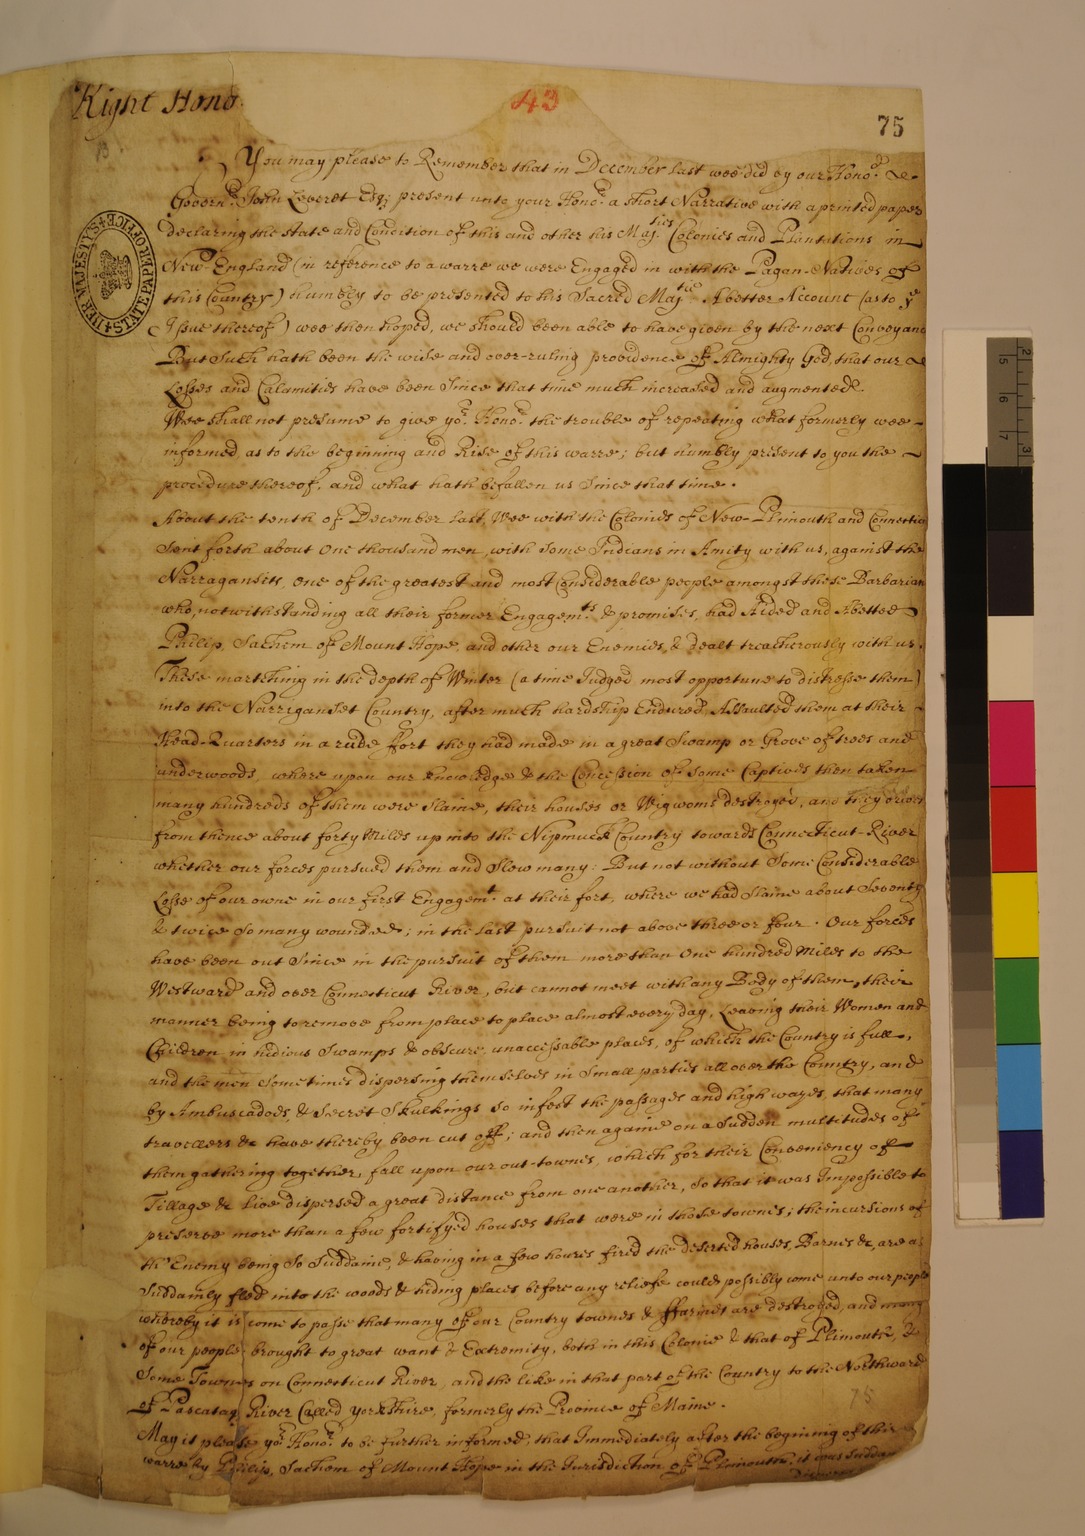 Right Hono:
43
75
You may please to Remember that in December last wee did by our Hono.d &
Govern.r John Leveret Esq; present unto your Hono.r a short Narrative with a printed paper
declaring the state and Condition of this and other his Maj.ties Colonies and Plantations in
New-England (in reference to a warre we were Engaged in with the Pagan-Natives of
this Country) humbly to be presented to his Sacred Maj.tie A better Account (as to ye
Issue thereof) wee then hoped, we should been able to have given by the next Convoyanc
But such hath been the wise and over-ruling providence of Almighty God, that our
Losses and Calamities have been since that time much increased and augmented.
Wee shall not presume to give yo.r Hono.r the trouble of repeating what formerly wee
informed, as to the beginning and Rise of this warre; but humbly present to you the
procedure thereof, and what hath befallen us since that time.
About the tenth of December last, Wee with the Colonies of New-Plimouth and Connectic
Sent forth about One thousand men, with some Indians in Amity with us, against the
Narragansits, One of the greatest and most Considerable people amongst these Barbarian
who, notwithstanding all their former Engagem.ts & promises, had Aided and Abetted
Philip, Sachem of Mount Hope, and other our Enemies, & dealt treacherously with us.
These marching in the depth of Winter (a time Judged most opportune to distresse them)
into the Narriganset Country, after much hardship Endured, Assaulted them at their
Head-Quarters in a rude fort they had made in a great Swamp or Grove of trees and
underwoods, where upon our knowledge & the Concession of some Captives then taken
many hundreds of them were slaine, their houses or Wigwoms destroyed, and they driven
from thence about forty Miles up into the Nipmuck Country towards Connecticut-River
whether our forces pursued them and slew many: But not without some Considerable
Losse of our owne in our first Engagem.t at their fort, where we had slaine about Seventy
& twice so many wounded; in the last pursuit not above three or four. Our forces
have been out since in the pursuit of them more than One hundred Miles to the
Westward and over Connecticut River, but cannot meet with any Body of them, their
manner being to remove from place to place almost every day, Leaving their Women and
Children in hidious swamps & obscure unaccessable places, of which the Country is full,
and the men sometimes dispersing themselves in small parties all over the Country, and
by Ambuscadoes, & secret skulkings so infest the passages and high wayes, that many
travellers &c have thereby been cut off; and then againe on a sudden multitudes of
them gathering together, fall upon our out-townes, which for their Conveniency of
Tillage &c live dispersed a great distance from one another, so that it was Impossible to
preserve more than a few fortifyed houses that were in those townes; the incursions of
the Enemy being so suddaine, & having in a few houres fired the deserted houses, Barnes &c, are as
suddainly fled into the woods & hiding places before any reliefe could possibly come unto our people
whereby it is come to passe that many of our Country townes & ffarmes are destroyed, and many
of our people brought to great want & Extremity, both in this Colonie & that of Plimouth, &
some Townes on Connecticut River, and the like in that part of the Country to the Northward
of Pascataq River Called yorkshire, formerly the Province of Maine.
75
May it please yo.r Hono.r to be further informed, that Immediately after the begining of this
warre by Philip, Sachem of Mount Hope in the Jurisdiction of Plimouth, it was suddain
HER MAJESTY'S STATE PAPER OFFICE